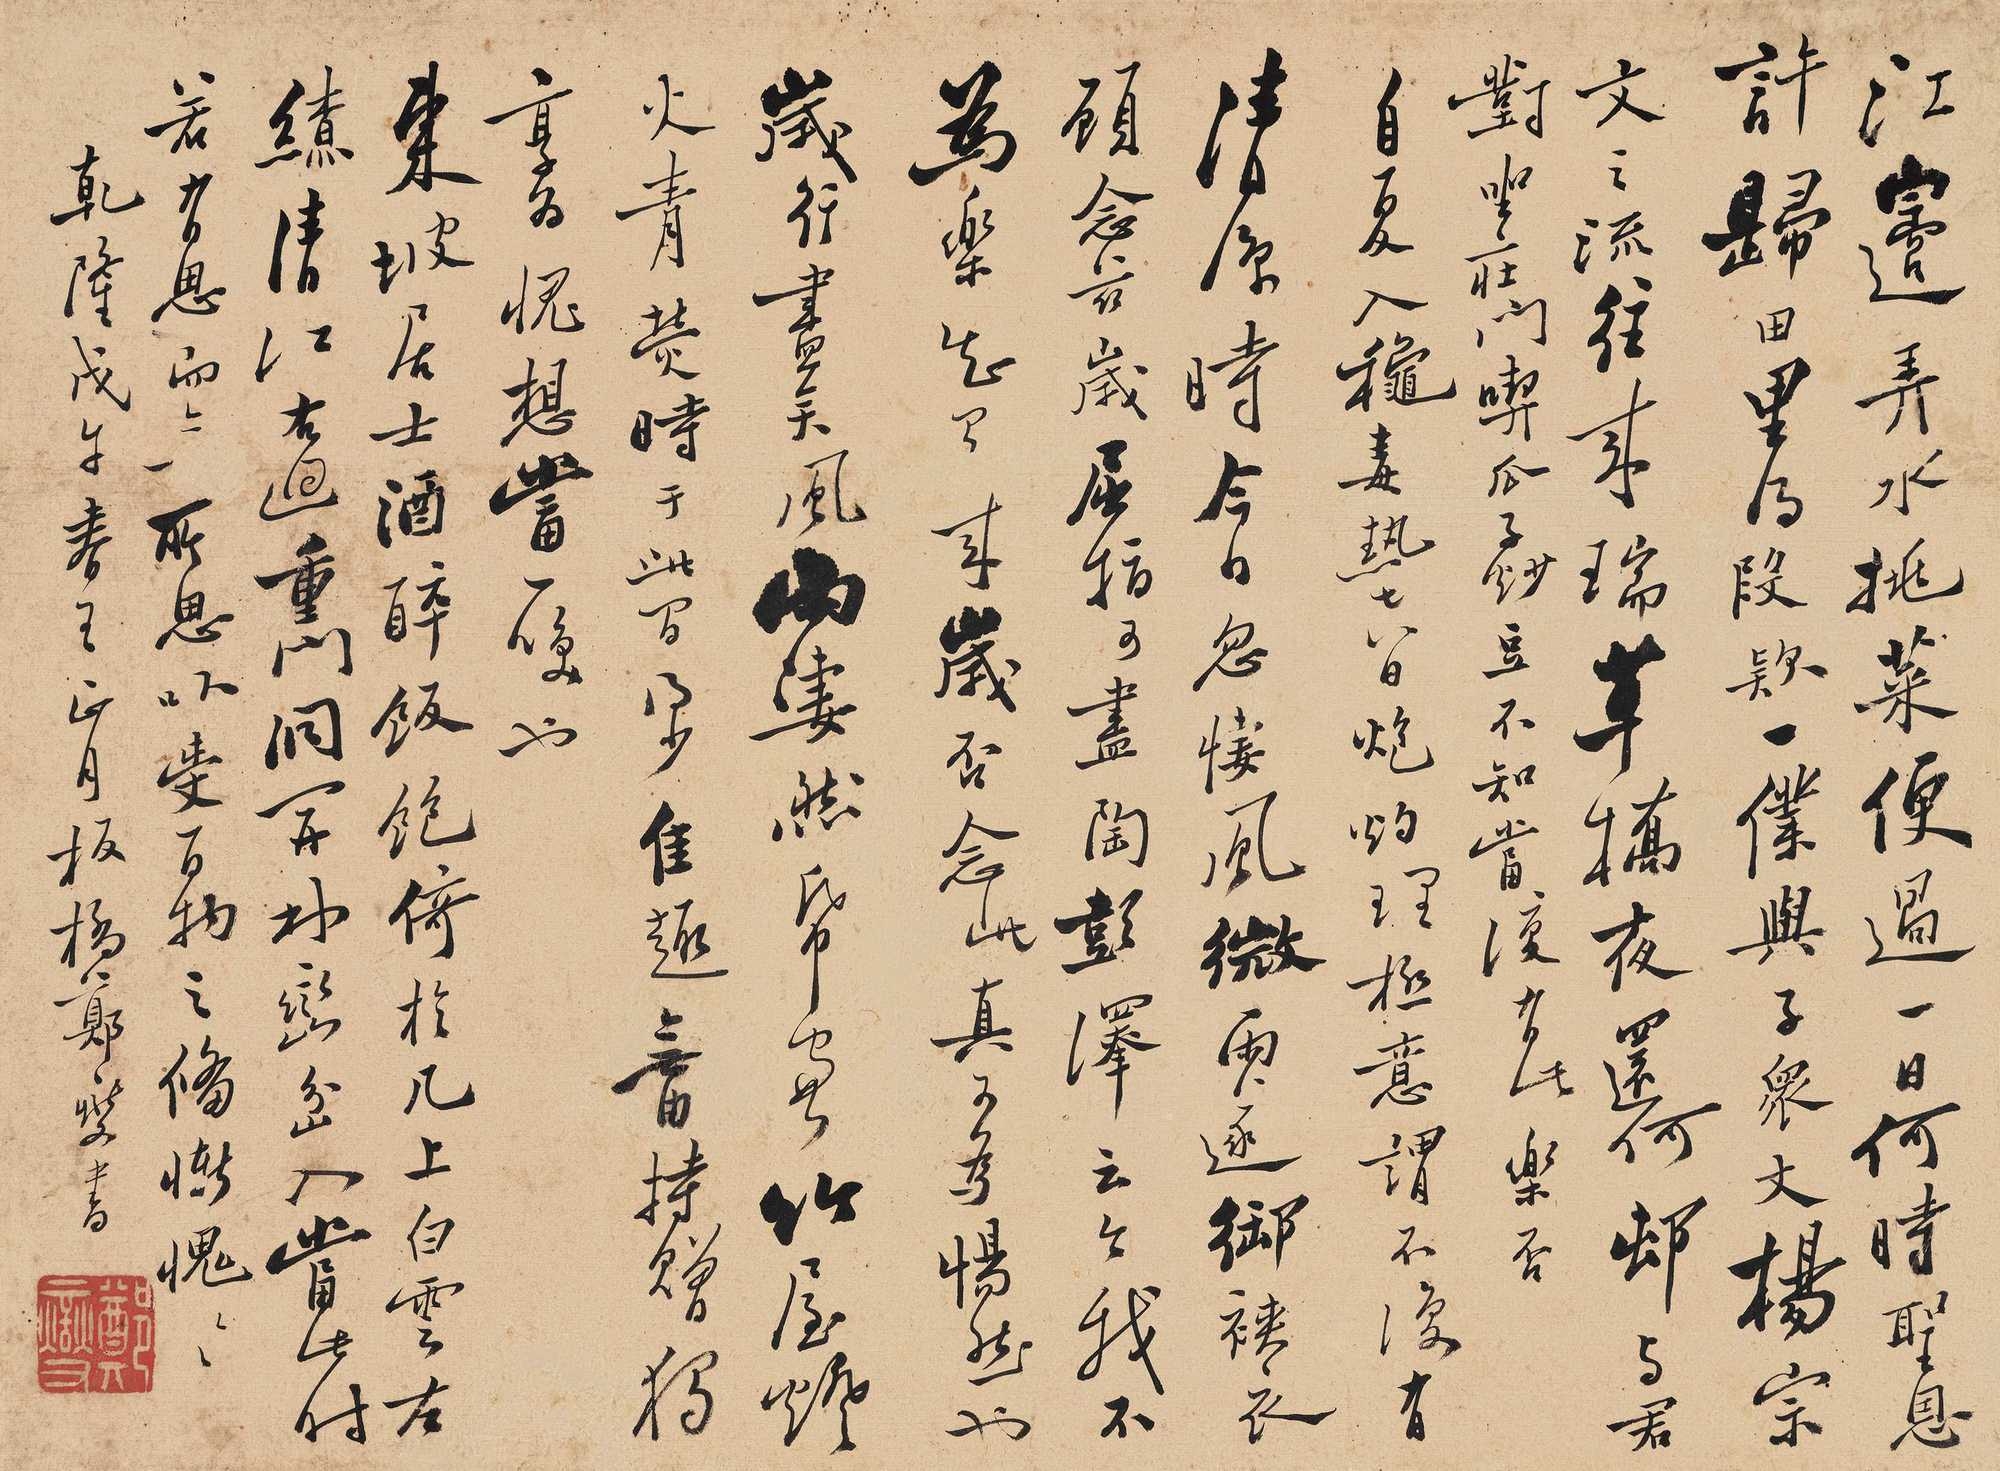 江邊弄水挑菜便過一日何時聖恩
許歸田里得段款一僕與子衆丈楊宗
文之流往來瑞草橋夜還何邨与君
對坐莊門喫瓜子炒豆不知當復有此樂否
自夏入秋毒熱七八日炮灼理極意謂不復有
清涼時今日忽悽風微雨遂御裌衣
顧念茲歲屈指可盡陶彭澤云今我不
為樂知有来歲否念此真可為惕然也
歲行盡矣風雨淒然紙窗竹屋燈
火青熒時于此間得少佳趣無由持贈獨
享為愧想當一噱也
東坡居士酒醉飯飽倚於几上白雲右
繞清江右洄重門洞開林巒岔入當此時
若有思而無所思以受百物之備慚愧慚愧
乾隆戊午春王正月板橋鄭燮書